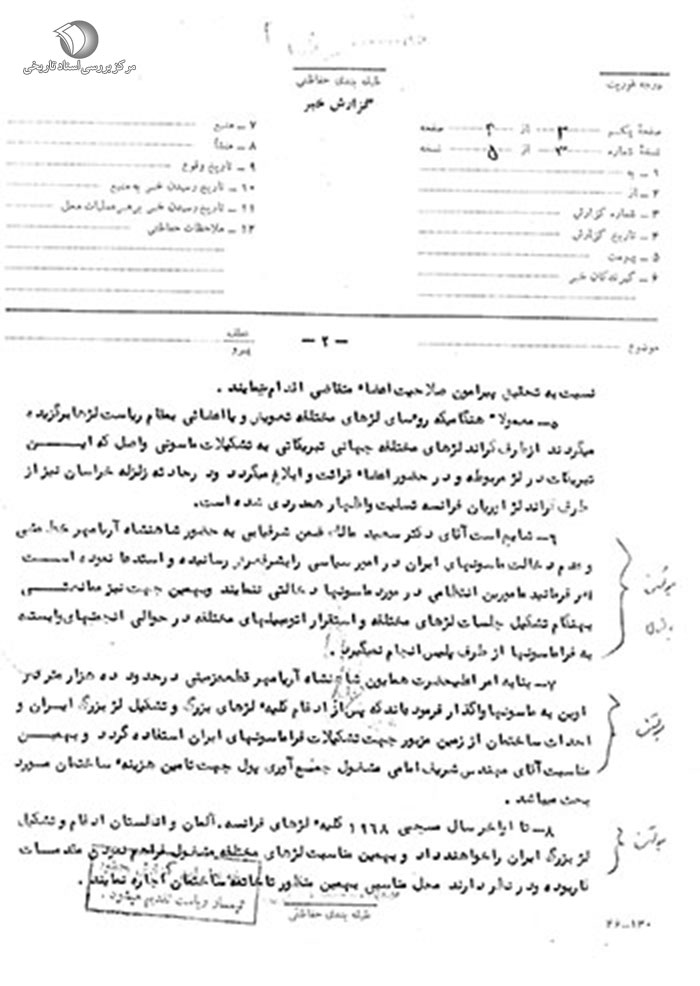 مرکز بررسی اسناد تاریخی
درجه فوریت
طبقه بندی حفاظتی
گزارش خبر
صفحهٔ یکم ۳ از ۴ صفحه
نسخهٔ شماره ۳ از ۵ نسخه
۱ - به
۲ - از
۳ - شماره گزارش
۴ - تاریخ گزارش
۵ - پیوست
۶ - گیرندگان خبر
۷ - منبع
۸ - منشأ
۹ - تاریخ وقوع
۱۰ - تاریخ رسیدن خبر به منبع
۱۱ - تاریخ رسیدن خبر به رهبر عملیات محل
۱۲ - ملاحظات حفاظتی
موضوع
- ۲ -
عطف
پیرو
نسبت به تحقیق پیرامون صلاحیت اعضاء متقاضی اقدام نمایند .
۵- معمولا" هنگامیکه روسای لژهای مختلفه تعویض و یا اعضائی بمقام ریاست لژها برگزیده
میگردند از طرف گراند لژهای مختلفه جهانی تبریکاتی به تشکیلات ماسونی واصل که ایـــن
تبریکات در لژ مربوطه و در حضور اعضاء قرائت و ابلاغ میگردد و در حادثه زلزله خراسان نیز از
طرف گراند لژ ایران فرانسه تسلیت و اظهار همدردی شده است.
۶- شایع است آقای دکتر سعید مالک ضمن شرفیابی به حضور شاهنشاه آریامهر خط مشی
و عدم دخالت ماسونهای ایران در امور سیاسی را بشرفعرض رسانیده و استدعا نموده اســت
امر فرمائید مامورین انتظامی در مورد ماسونها دخالتی ننمایند و بهمین جهت نیز ممانعتــی
بهنگام تشکیل جلسات لژهای مختلفه و استقرار اتومبیلهای مختلفه در حوالی انجمنهای وابسته
به فراماسونها از طرف پلیس انجام نمیگیرد .
۷- بنا به امر اعلیحضرت همایون شاهنشاه آریامهر قطعه زمینی در حدود ده هزار متر در
اوین به ماسونها واگذار فرموده اند که پس از ادغام کلیهٔ لژهای بزرگ و تشکیل لژ بزرگ ایــران و
احداث ساختمان از زمین مزبور جهت تشکیلات فراماسونهای ایران استفاده گردد و بهمـیــن
مناسبت آقای مهندس شریف امامی مشغول جمع آوری پول جهت تامین هزینهٔ ساختمان مـورد
بحث میباشد .
۸- تا اواخر سال مسیحی ۱۹۶۸ کلیهٔ لژهای فرانسه. آلمان و انگلستان ادغام و تشکیل
لژ بزرگ ایران را خواهند داد و بهمین مناسبت لژهای مختلفه مشغول فراهم نمودن مقدمـات
کار بوده و در نظر دارند محل مناسبی بهمین منظور تا خاتمهٔ ساختمان اجاره نمایند .
تیمسار ریاست تقدیم میشود .
طبقه بندی حفاظتی
۲۶-۱۳۰